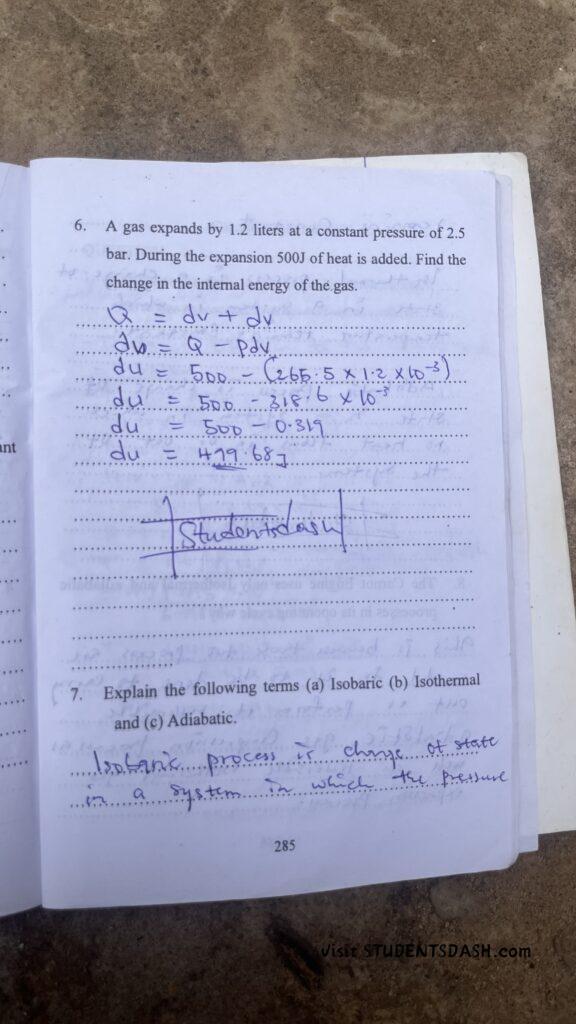 6. A gas expands by 1.2 liters at a constant pressure of 2.5
bar. During the expansion 500J of heat is added. Find the
change in the internal energy of the gas.
Q = dv + dv
du = Q - Pdv
du = 500 - (265.5 x 1.2 x 10⁻³)
du = 500 - 318.6 x 10⁻³
du = 500 - 0.319
du = 499.68J
Studentsdash
ant
7. Explain the following terms (a) Isobaric (b) Isothermal
and (c) Adiabatic.
Isobaric process is change of state
in a system in which the pressure
285
Visit STUDENTSDASH.com